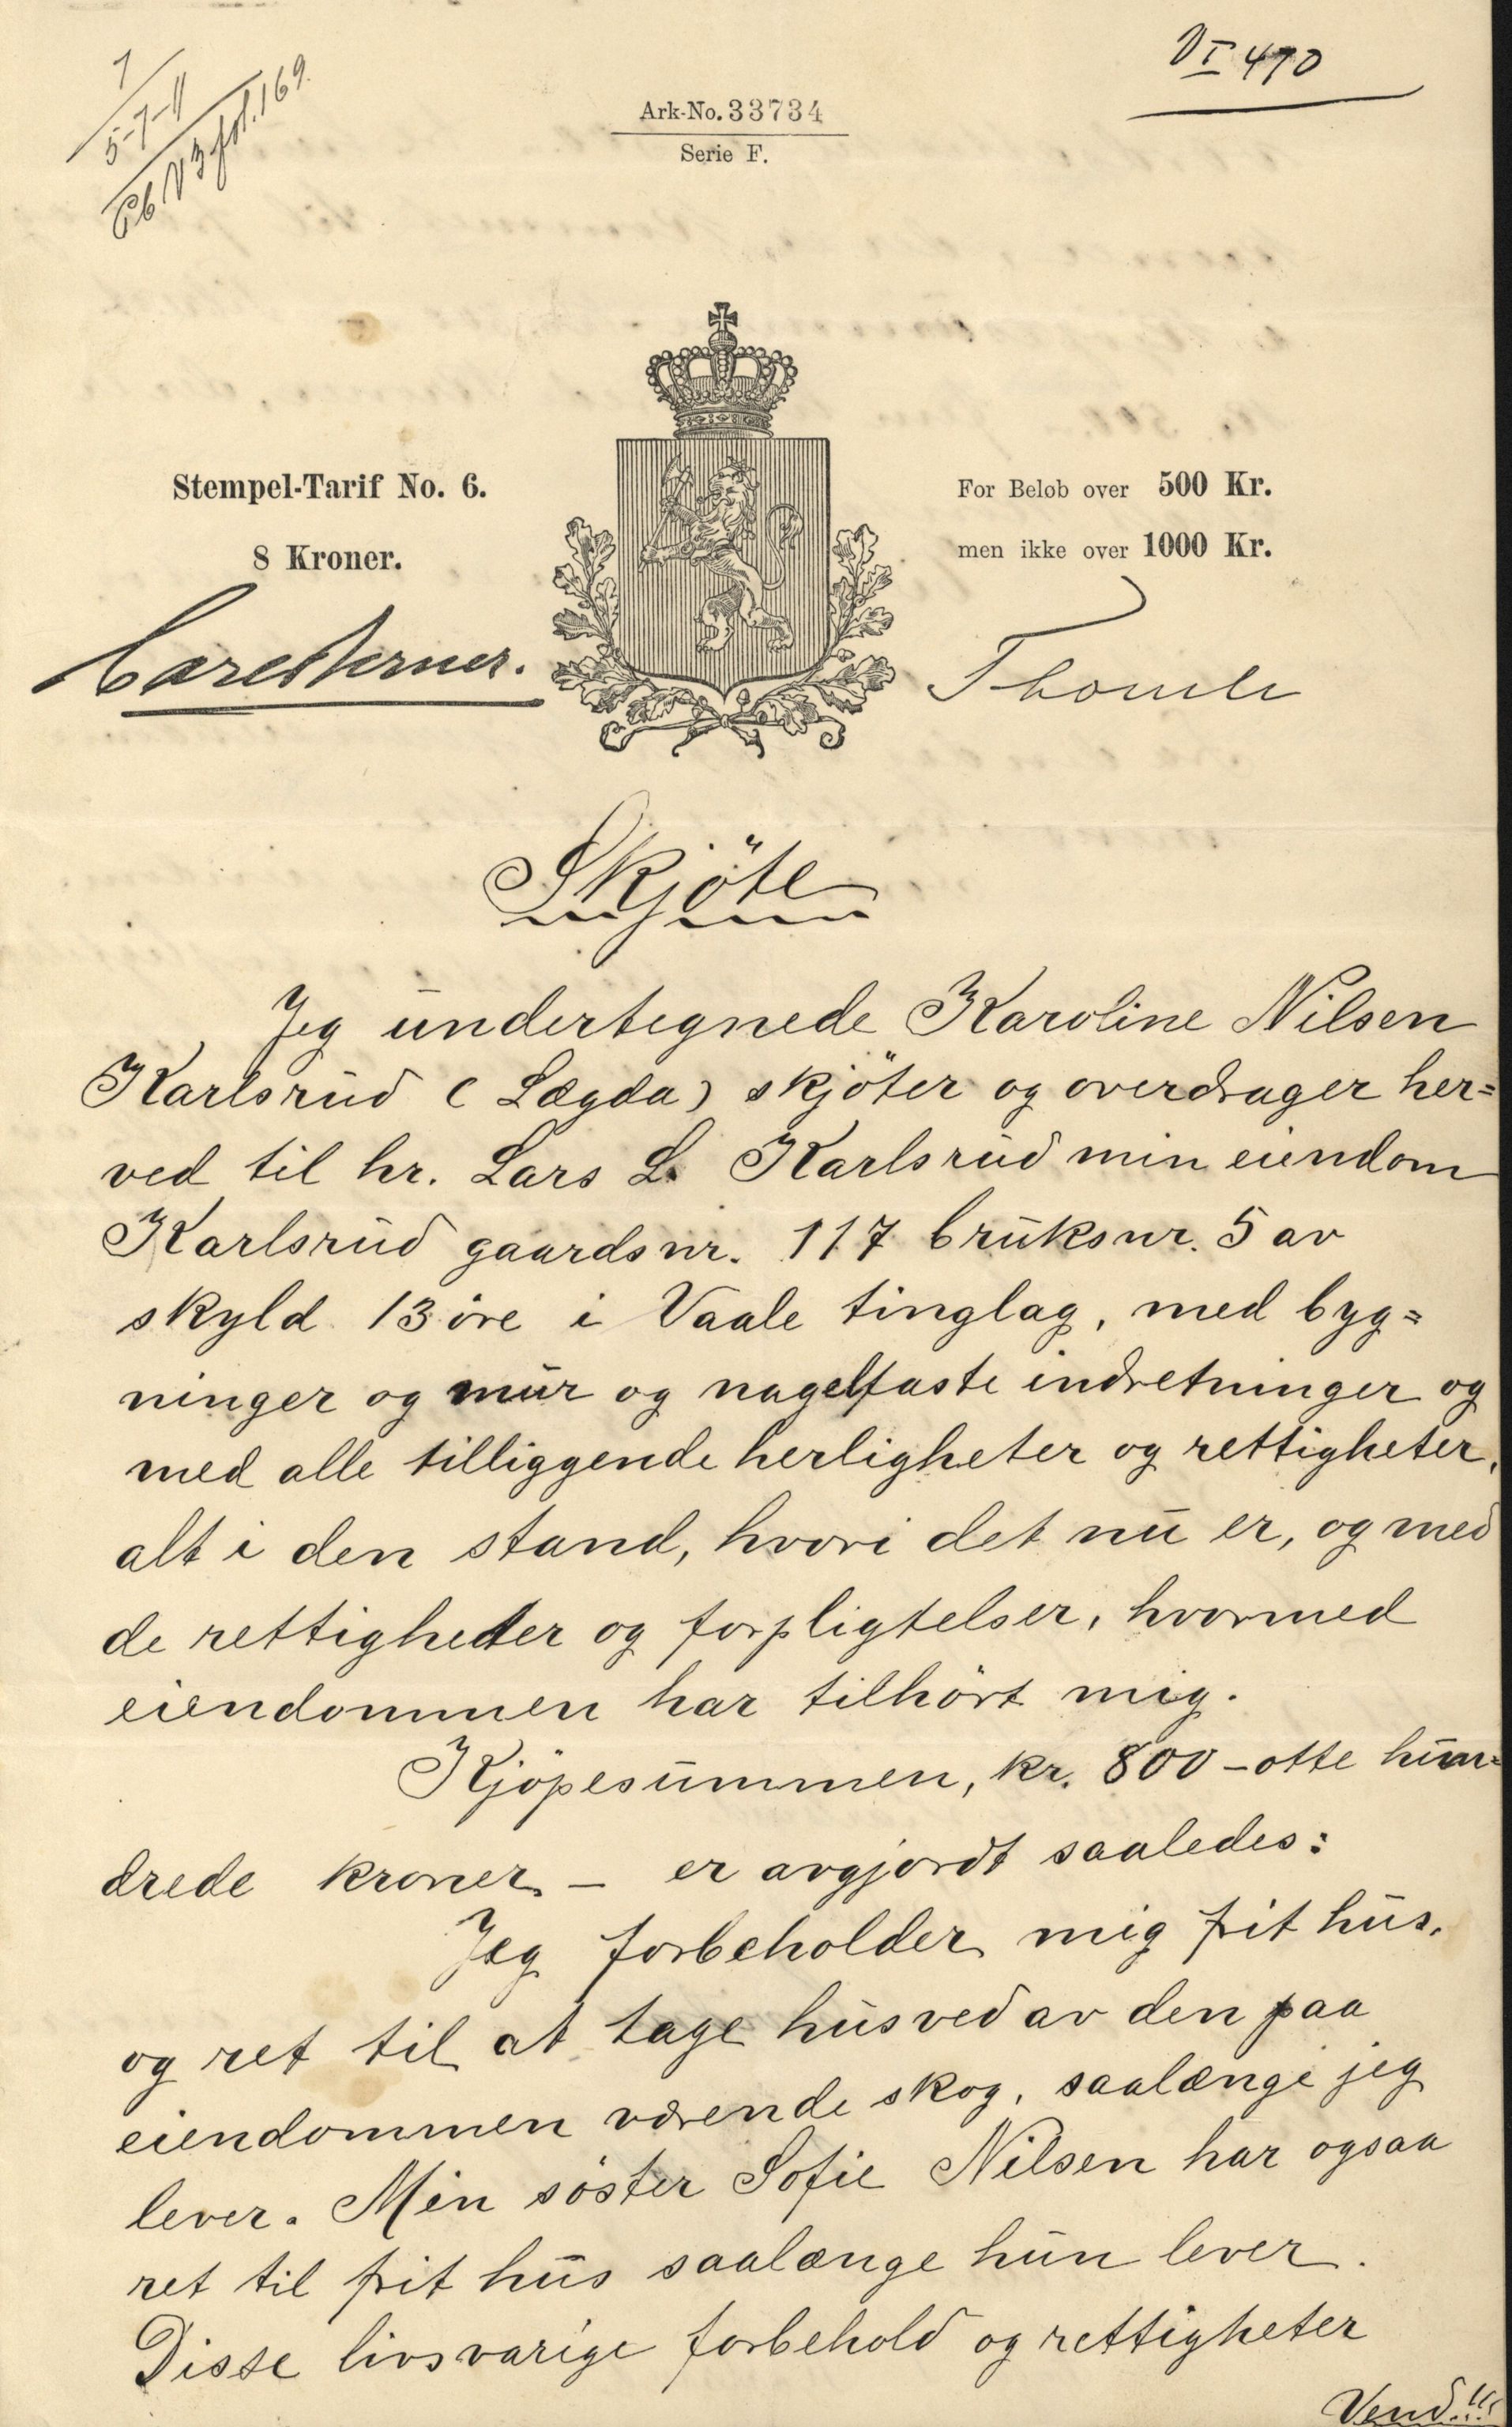 1
5-7-11
Pb N 3 fol. 169.
VI 470
Ark-No. 33734
Serie F.
Stempel-Tarif No. 6.
8 Kroner.
For Beløb over 500 Kr.
men ikke over 1000 Kr.
Skjöte
Jeg undertegnede Karoline Nilsen
Karlsrud (Lægda) skjöter og overdrager her=
ved til hr. Lars L. Karlsrud min eiendom
Karlsrud gaardsnr. 117 bruksnr. 5 av
skyld 13 öre i Vaale tinglag, med byg=
ninger og mur og nagelfaste indretninger og
med alle tilliggende herligheter og rettigheter,
alt i den stand, hvori det nu er, og med
de rettigheter og forpligtelser, hvormed
eiendommen har tilhört mig.
Kjöpesummen, kr. 800 - otte hun=
drede kroner - er avgjordt saaledes:
Jeg forbeholder mig frit hus,
og ret til at tage husved av den paa
eiendommen værende skog, saalænge jeg
lever. Min söster Sofie Nilsen har ogsaa
ret til frit hus saalænge hun lever.
Disse livsvarige forbehold og rettigheter
Vend!!!